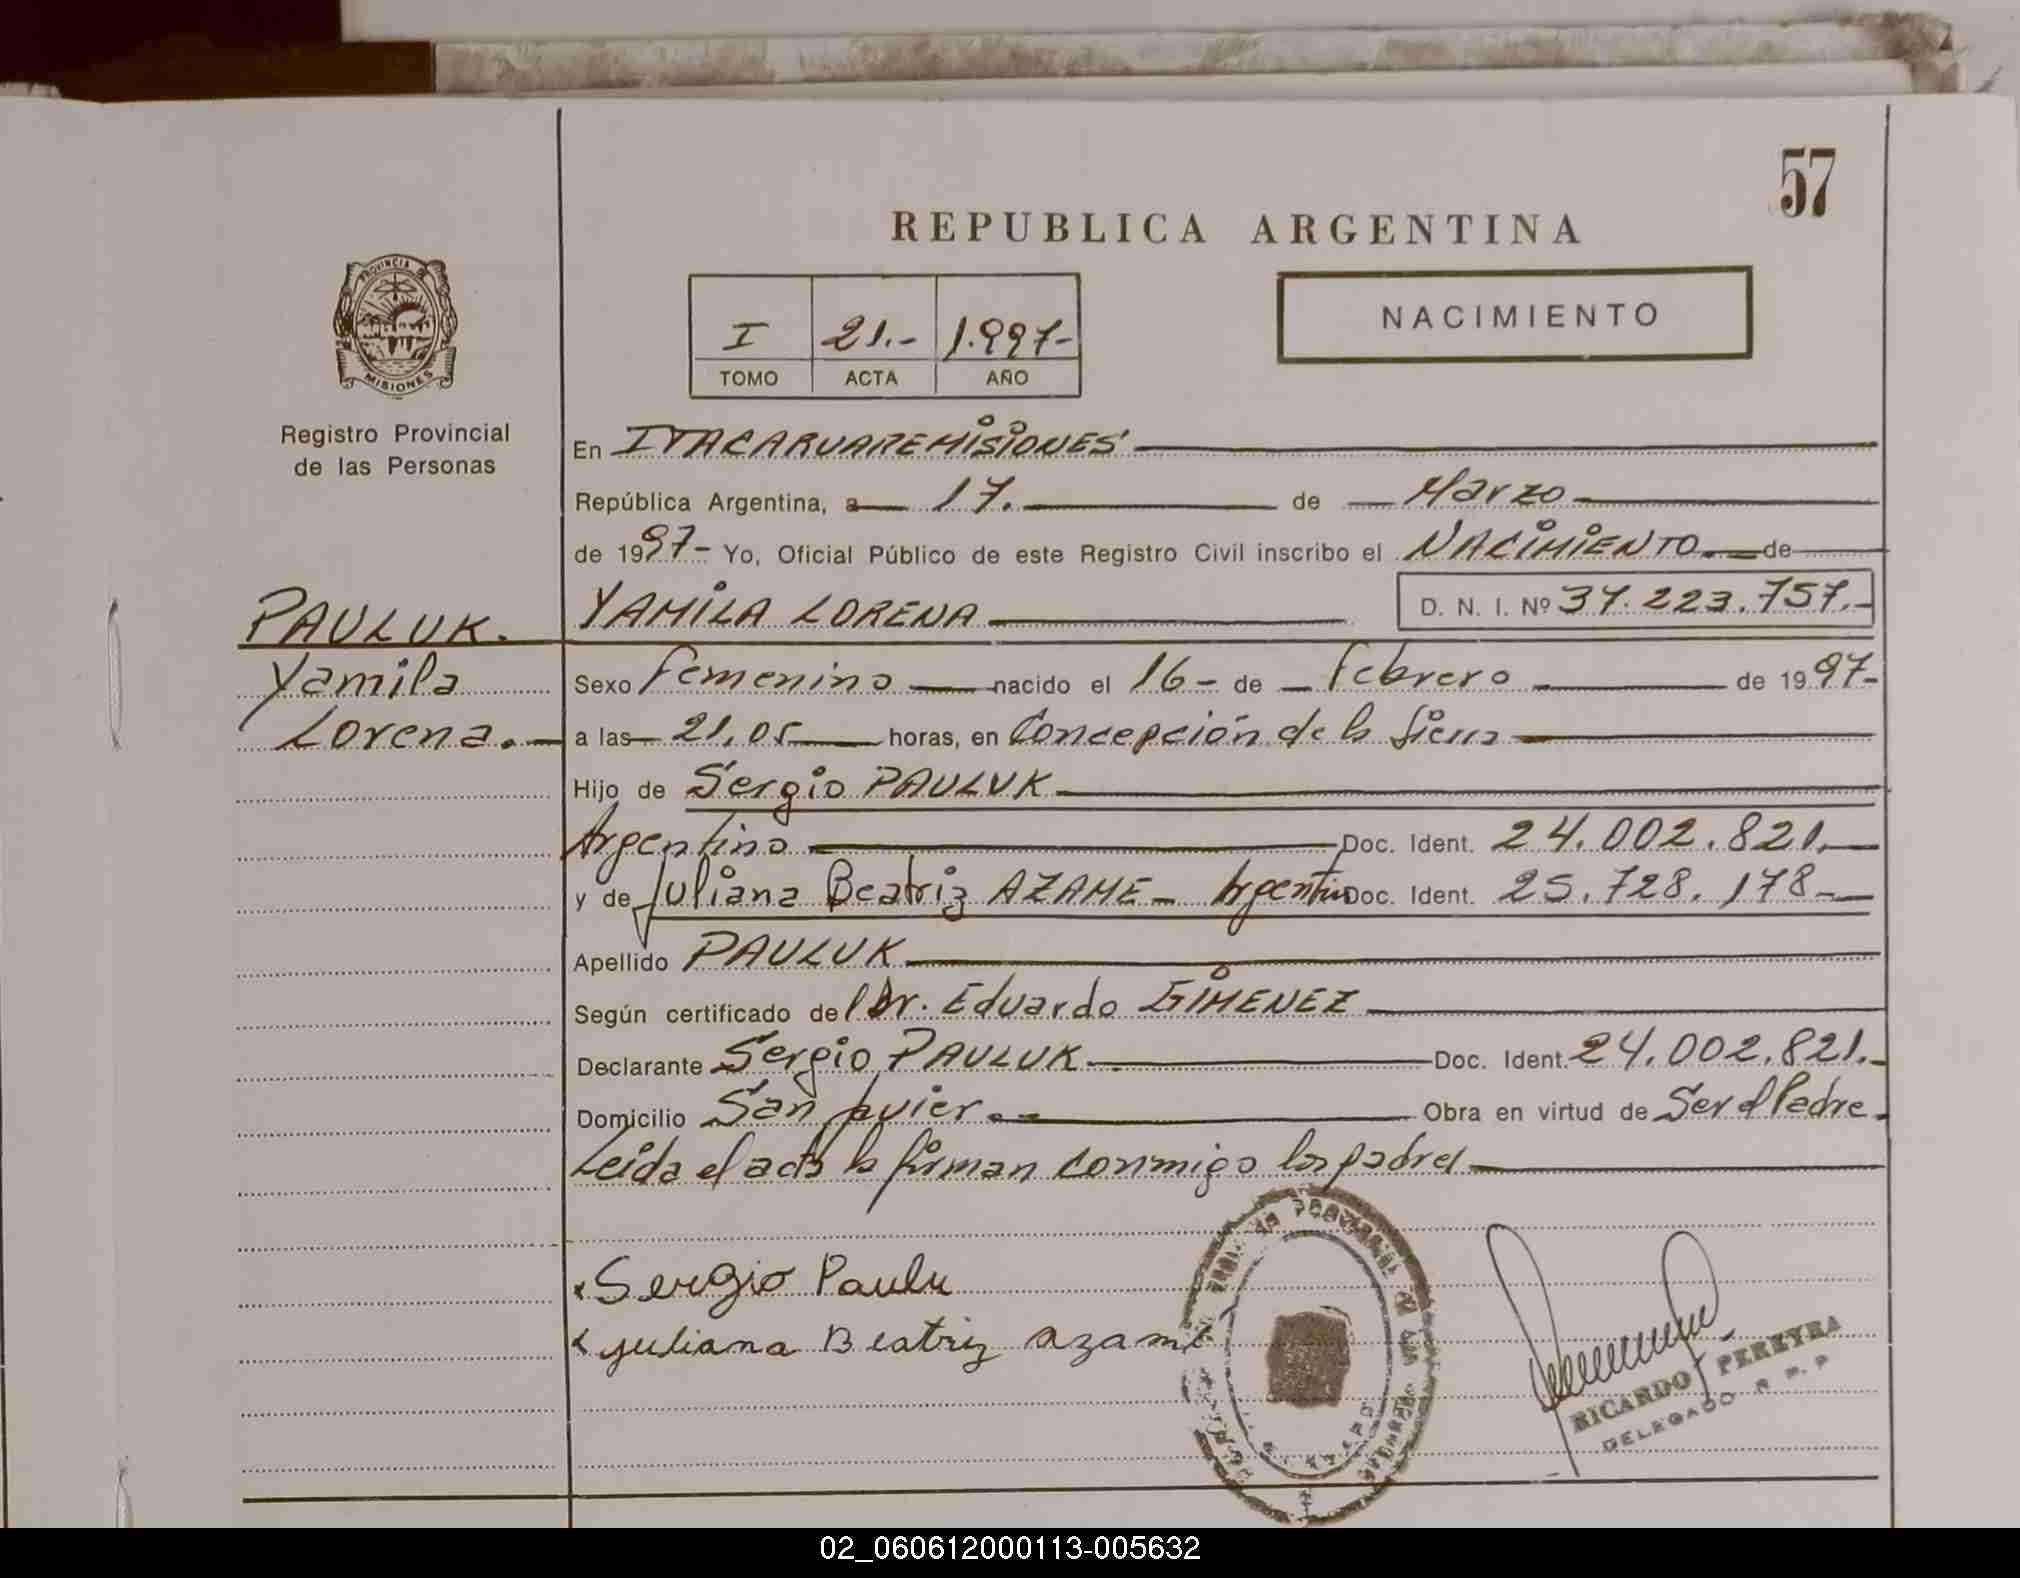 57
REPUBLICA ARGENTINA
PROVINCIA DE
MISIONES
Registro Provincial
de las Personas
I 21.- 1.997-
TOMO ACTA AÑO
NACIMIENTO
En ITACARUARE MISIONES
República Argentina, a 17. de Marzo
de 1997- Yo, Oficial Público de este Registro Civil inscribo el NACIMIENTO. de
PAULUK.
Yamila
Lorena.
YAMILA LORENA D. N. I. Nº 37.223.757.-
Sexo Femenino nacido el 16- de Febrero de 1997-
a las 21,05 horas, en Concepción de la Sierra
Hijo de Sergio PAULUK
Argentino Doc. Ident. 24.002.821.
y de Juliana Beatriz AZAME - Argentina Doc. Ident. 25.728.178-
Apellido PAULUK
Según certificado del Dr. Eduardo GIMENEZ
Declarante Sergio PAULUK Doc. Ident. 24.002.821.-
Domicilio San Javier. Obra en virtud de Ser el Padre.
Leida el acta la firman conmigo los padres
Sergio Pauluk
Juliana Beatriz azame
RICARDO PEREYRA
DELEGADO R. P. P
02_060612000113-005632